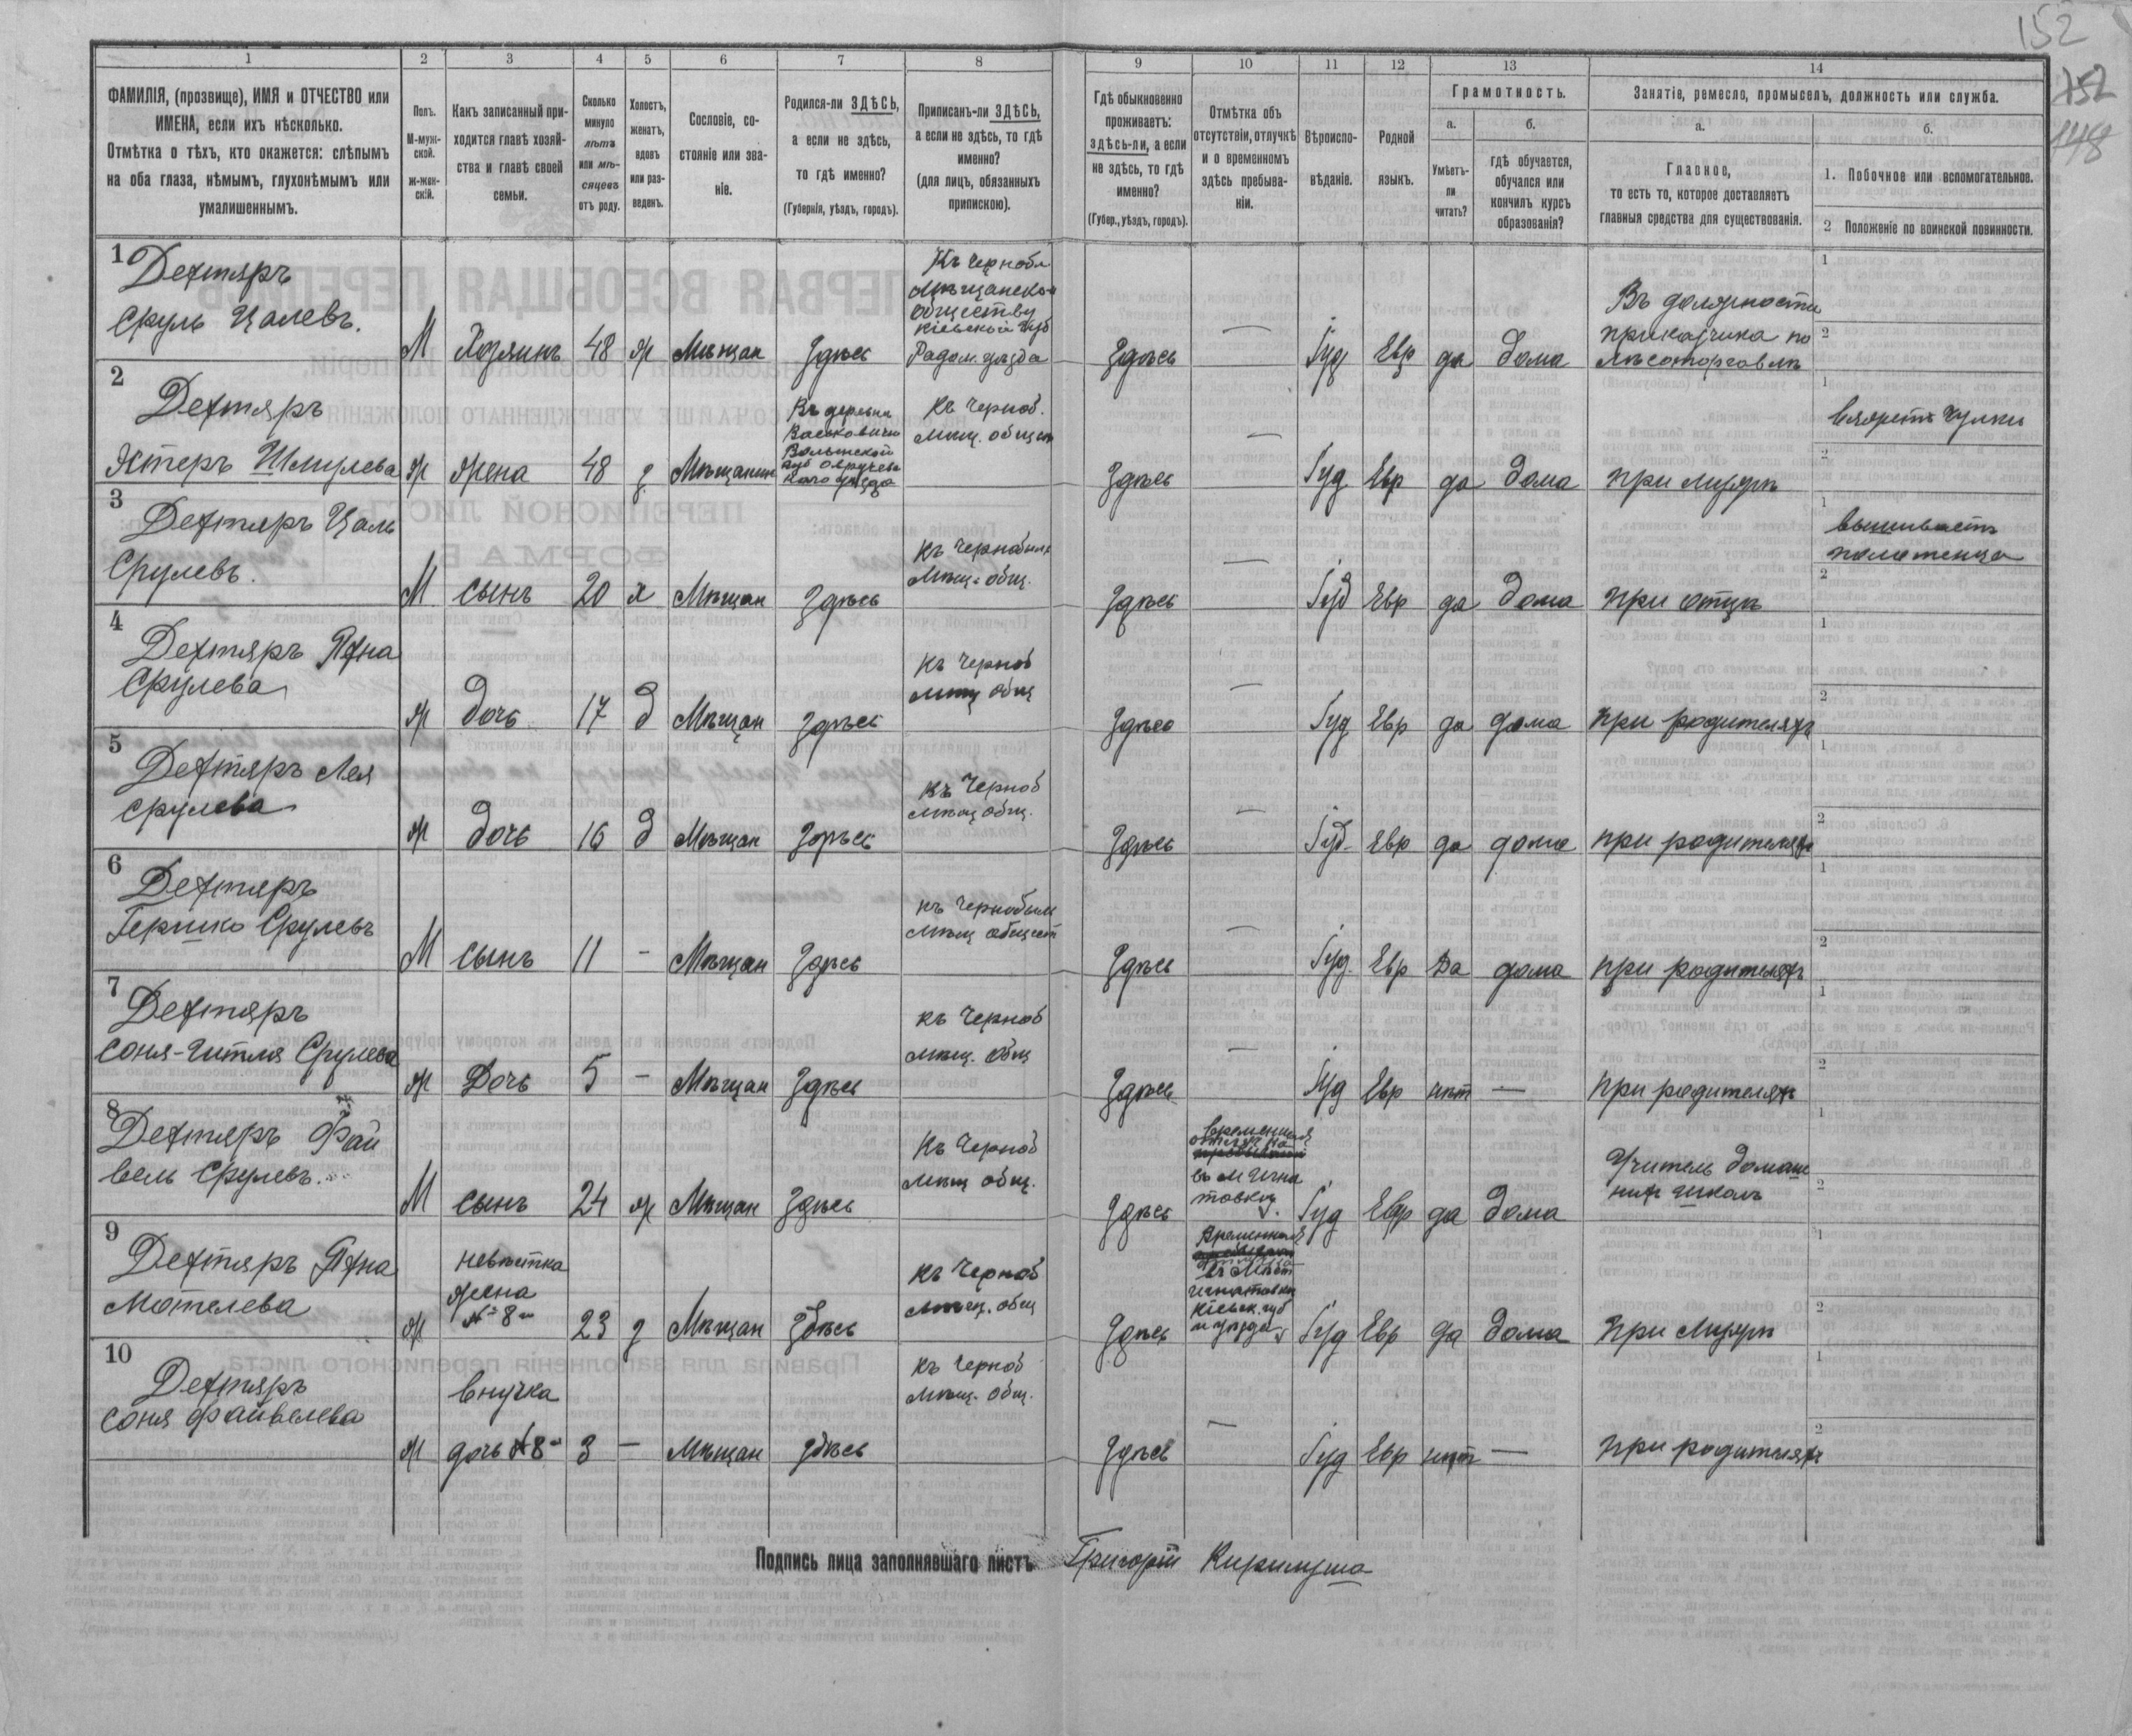 152
152
148
1 2 3 4 5 6 7 8 9 10 11 12 13 14
ФАМИЛІЯ, (прозвище), ИМЯ и ОТЧЕСТВО или
ИМЕНА, если ихъ нѣсколько.
Отмѣтка о тѣхъ, кто окажется: слѣпымъ
на оба глаза, нѣмымъ, глухонѣмымъ или
умалишеннымъ.
Полъ.
М-муж-
ской.
ж-жен-
скій.
Какъ записанный при-
ходится главѣ хозяй-
ства и главѣ своей
семьи.
Сколько
минуло
лѣтъ
или мѣ-
сяцевъ
отъ роду.
Холостъ,
женатъ,
вдовъ
или раз-
веденъ.
Сословіе, со-
стояніе или зва-
ніе.
Родился-ли ЗДѢСЬ,
а если не здѣсь,
то гдѣ именно?
(Губернія, уѣздъ, городъ).
Приписанъ-ли ЗДѢСЬ,
а если не здѣсь, то гдѣ
именно?
(для лицъ, обязанныхъ
припискою).
Гдѣ обыкновенно
проживаетъ:
здѣсь-ли, а если
не здѣсь, то гдѣ
именно?
(Губер., уѣздъ, городъ).
Отмѣтка объ
отсутствіи, отлучкѣ
и о временномъ
здѣсь пребыва-
ніи.
Вѣроиспо-
вѣданіе.
Родной
языкъ.
Грамотность.
а.
Умѣетъ-
ли
читать?
б.
гдѣ обучается,
обучался или
кончилъ курсъ
образованія?
Занятіе, ремесло, промыселъ, должность или служба.
а.
Главное,
то есть то, которое доставляетъ
главныя средства для существованія.
б.
1. Побочное или вспомогательное.
2 Положеніе по воинской повинности.
1
Дехтяръ
Сруль Цалевъ.
М Хозяинъ 48 ж Мѣщан Здѣсь
Къ Чернобл
Мѣщанском
Обществу
Кіевской губ
Радом. уѣзда
Здѣсь — Іуд Евр да дома
Въ должности
прикащика по
лѣсоторговлѣ
1
2
2
Дехтяръ
Эстеръ Шмулева
ж жена 48 з Мѣщанин
Въ деревни
Васьковичи
Волынской
губ Овручев
каго уѣзда
Къ Черноб.
мѣщ. общест
Здѣсь — Іуд Евр да дома при мужѣ
1
вяжетъ чулки
2
3
Дехтяръ Цаль
Срулевъ.
М сынъ 20 х Мѣщан Здѣсь
Къ Чернобыль
Мѣщ. общ.
Здѣсь — Іуд Евр да дома при отцѣ
1
вышиваетъ
полотенца
2
4
Дехтяръ
Срулева
ж дочь 17 д Мѣщан Здѣсь
Къ Черноб
мѣщ общ
Здѣсь — Іуд Евр да дома при родителяхъ
1
2
5
Дехтяръ Лея
Срулева
ж дочь 16 д Мѣщан Здѣсь
Къ Черноб
мѣщ общ.
Здѣсь — Іуд Евр да дома при родителяхъ
1
2
6
Дехтяръ
Гершко Срулевъ
М сынъ 11 — Мѣщан Здѣсь
къ Чернобыл
мѣщ общест
Здѣсь — Іуд Евр Да дома при родителяхъ
1
2
7
Дехтяръ
Соня-Гитля Срулева
ж Дочь 5 — Мѣщан Здѣсь
къ Черноб
мѣщ. общ
Здѣсь — Іуд Евр нѣт — при родителяхъ
1
2
8
Дехтяръ Фай
вель Срулевъ.
М сынъ 24 ж Мѣщан Здѣсь
Къ Черноб
мѣщ общ.
Здѣсь
в м Игна
товку
Іуд Евр да дома
Учитель домаш
нихъ школъ
1
2
9
Дехтяръ
Мотелева
ж
невѣстка
жена
№ 8
23 з Мѣщан Здѣсь
Къ Черноб
мѣщ. общ
Здѣсь
Временная
въ Мѣст
Игнатовку
Кіевск. губ
и уѣзда
Іуд Евр да дома при мужѣ
1
2
10
Дехтяръ
Соня Файвелева
ж
внучка
дочь №8
3 — Мѣщан здѣсь
къ Черноб
мѣщ. общ.
Здѣсь — Іуд Евр нѣт — при родителяхъ
1
2
Подпись лица заполнявшаго листъ